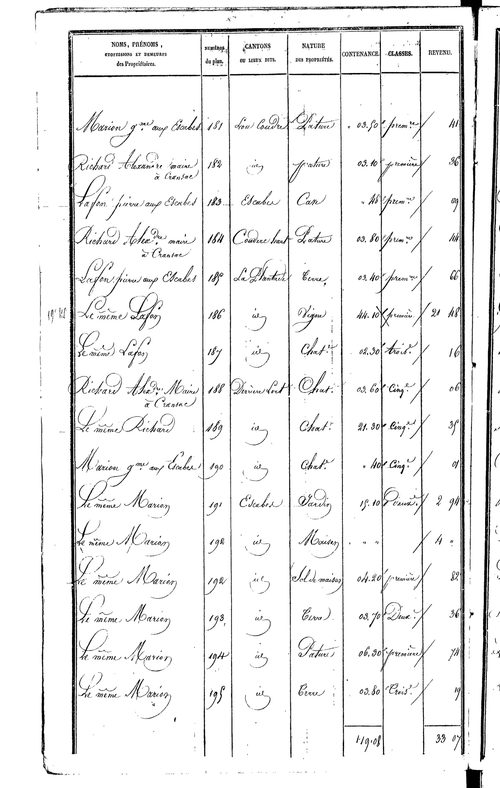 NOMS, PRÉNOMS, PROFESSIONS ET DEMEURES des Propriétaires. NUMÉROS du plan. CANTONS OU LIEUX DITS. NATURE DES PROPRIÉTÉS. CONTENANCE. CLASSES. REVENU.
Marion gme aux Escabes 181 Pature 03.50 premre 41
Richard Alexandre maire à Cransac 182 id pature 03.10 première 36
Lafon pierre aux Escabes 183 Escabes Case " 48 premre 09
Richard Alexdre maire à Cransac 184 Coudere haut Pature 03.80 premre 44
Lafon pierre aux Escabes 185 La Plantade Terre 03.40 premre 66
Le même Lafon 186 id Vigne 44.10 première 21 48
Le même Lafon 187 id Chatre 02.30 trois. 16
Richard Alexdre Maire à Cransac 188 Chat. 03.60 Cinq. 06
Le même Richard 189 id Chat. 21.30 Cinq. 35
Marion gme aux Escabes 190 id Chat. " 40 Cinq. 01
Le même Marion 191 Escabes Jardin 15.10 Deux. 2 94
Le même Marion 192 id Maison " " 4 "
Le même Marion 192 id Sol de maison 04.20 première 82
Le même Marion 193 id Terre 03.70 Deux. 36
Le même Marion 194 id Pature 06.30 première 74
Le même Marion 195 id Terre 03.80 Trois. 19
1.19.08 33 07